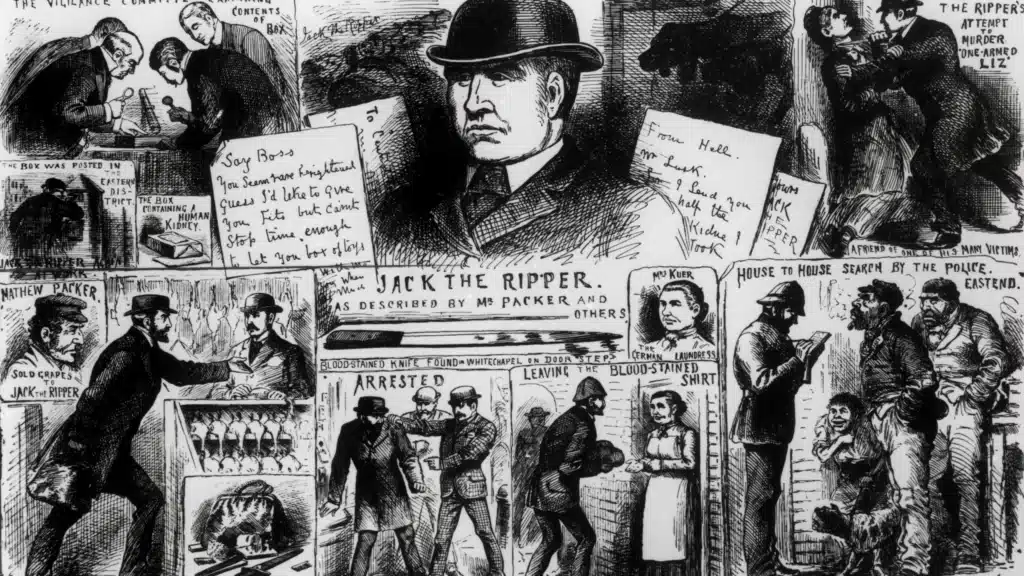 THE VIGILANCE COMMITTEE EXAMINING
CONTENTS
OF
BOX
THE RIPPER'S
ATTEMPT
TO
MURDER
'ONE-ARMED
LIZ'
A FRIEND OF ONE OF HIS MANY VICTIMS.
THE BOX WAS POSTED IN
THE
EASTERN
DIS
TRICT.
THE BOX
CONTAINING A
HUMAN
KIDNEY.
Say Boss
You seem rare frightened
Guess I'd like to give
You Fits but can't
Stop time enough
to let you box of toys
From Hell.
Mr Lusk.
I Send you
half the
Kidne I
Took
JACK THE RIPPER.
AS DESCRIBED BY Mr PACKER AND
OTHERS
BLOOD-STAINED KNIFE FOUND = WHITECHAPEL ON DOOR STEPS
Mrs KUER
THE
GERMAN LAUNDRESS
MATHEW PACKER.
SOLD GRAPES
TO
JACK THE RIPPER
ARRESTED
LEAVING THE BLOOD-STAINED
SHIRT
HOUSE TO HOUSE SEARCH BY THE POLICE.
EASTEND.